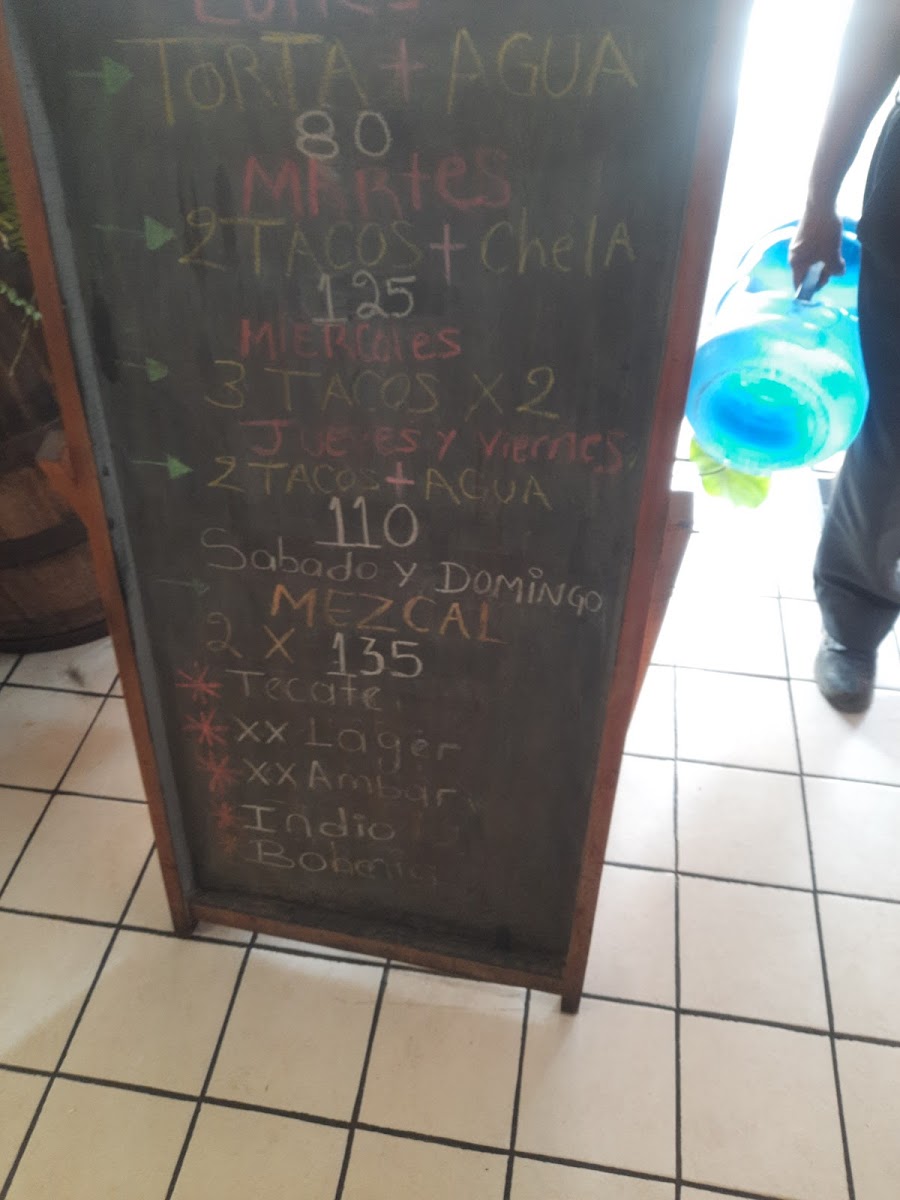 LUNES
TORTA + AGUA
80
MARtes
2 TACOS + ChelA
125
MIERColes
3 TACOS X 2
Jueves y Viernes
2 TACOS + AGUA
110
Sabado y DOMINGO
MEZCAL
2 X 135
Tecate
XX Lager
XX Ambar
Indio